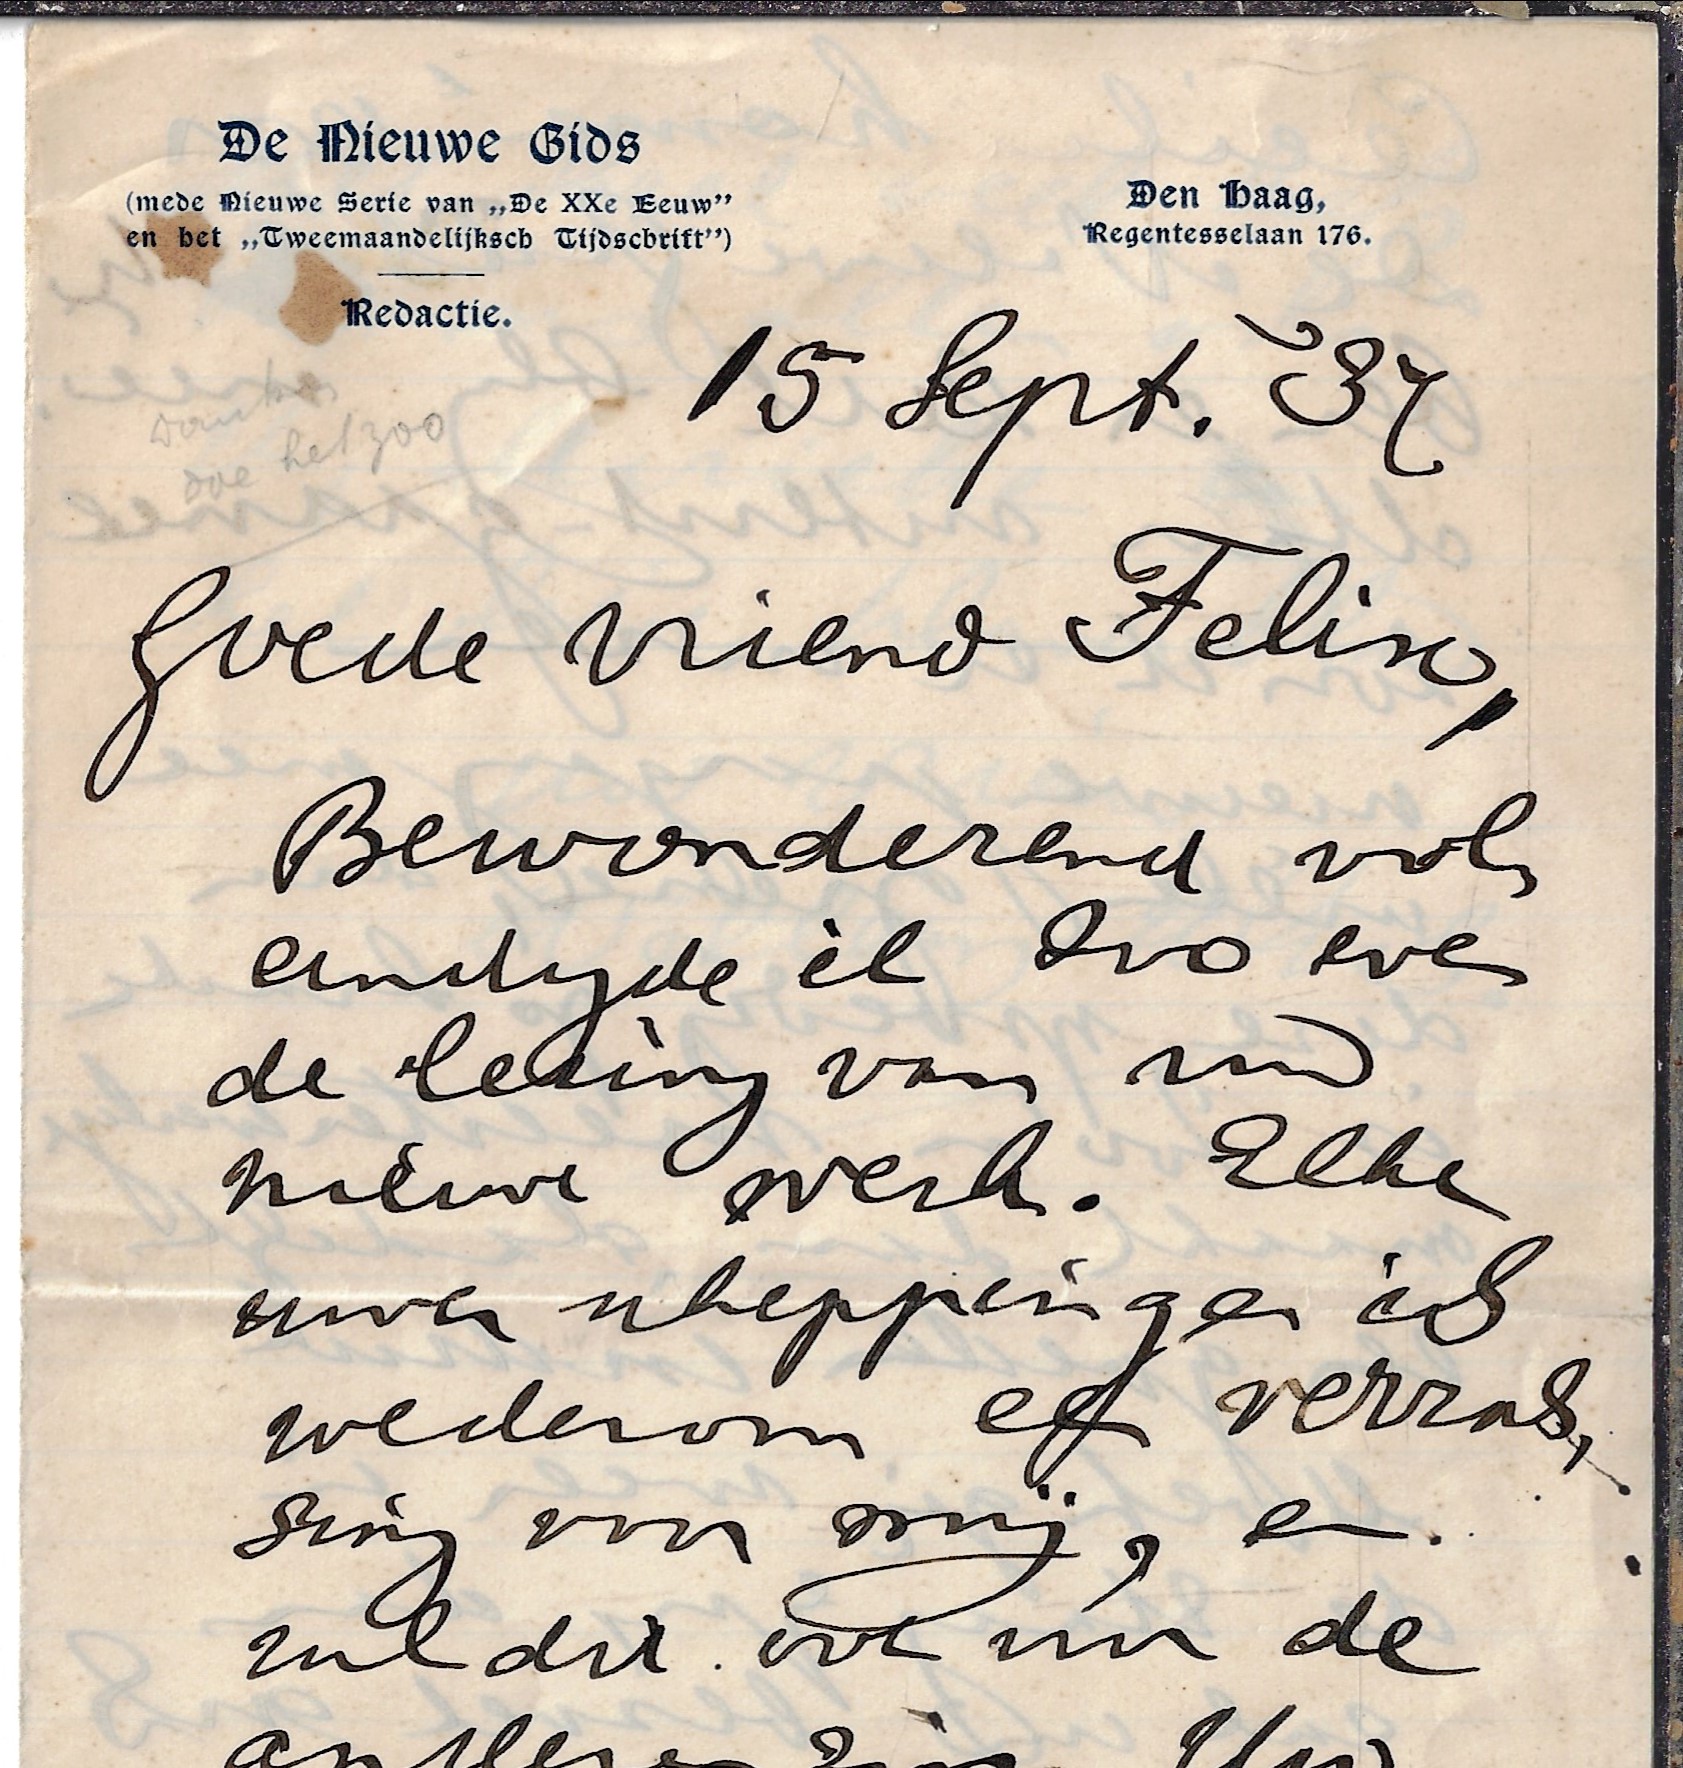 De Nieuwe Gids
(mede Nieuwe Serie van „De XXe Eeuw”
en het „Tweemaandelijksch Tijdschrift”)
Redactie.
Den Haag,
Regentesselaan 176.
15 Sept. '37
doe het zoo
Goede vriend Felix,
Bewonderend vol-
eindigde ik zoo even
de lezing van uw
nieuwe werk. Elke
uwer scheppingen is
wederom een verras-
sing voor mij, en
zal dit ook voor de
anderen zijn. Uw